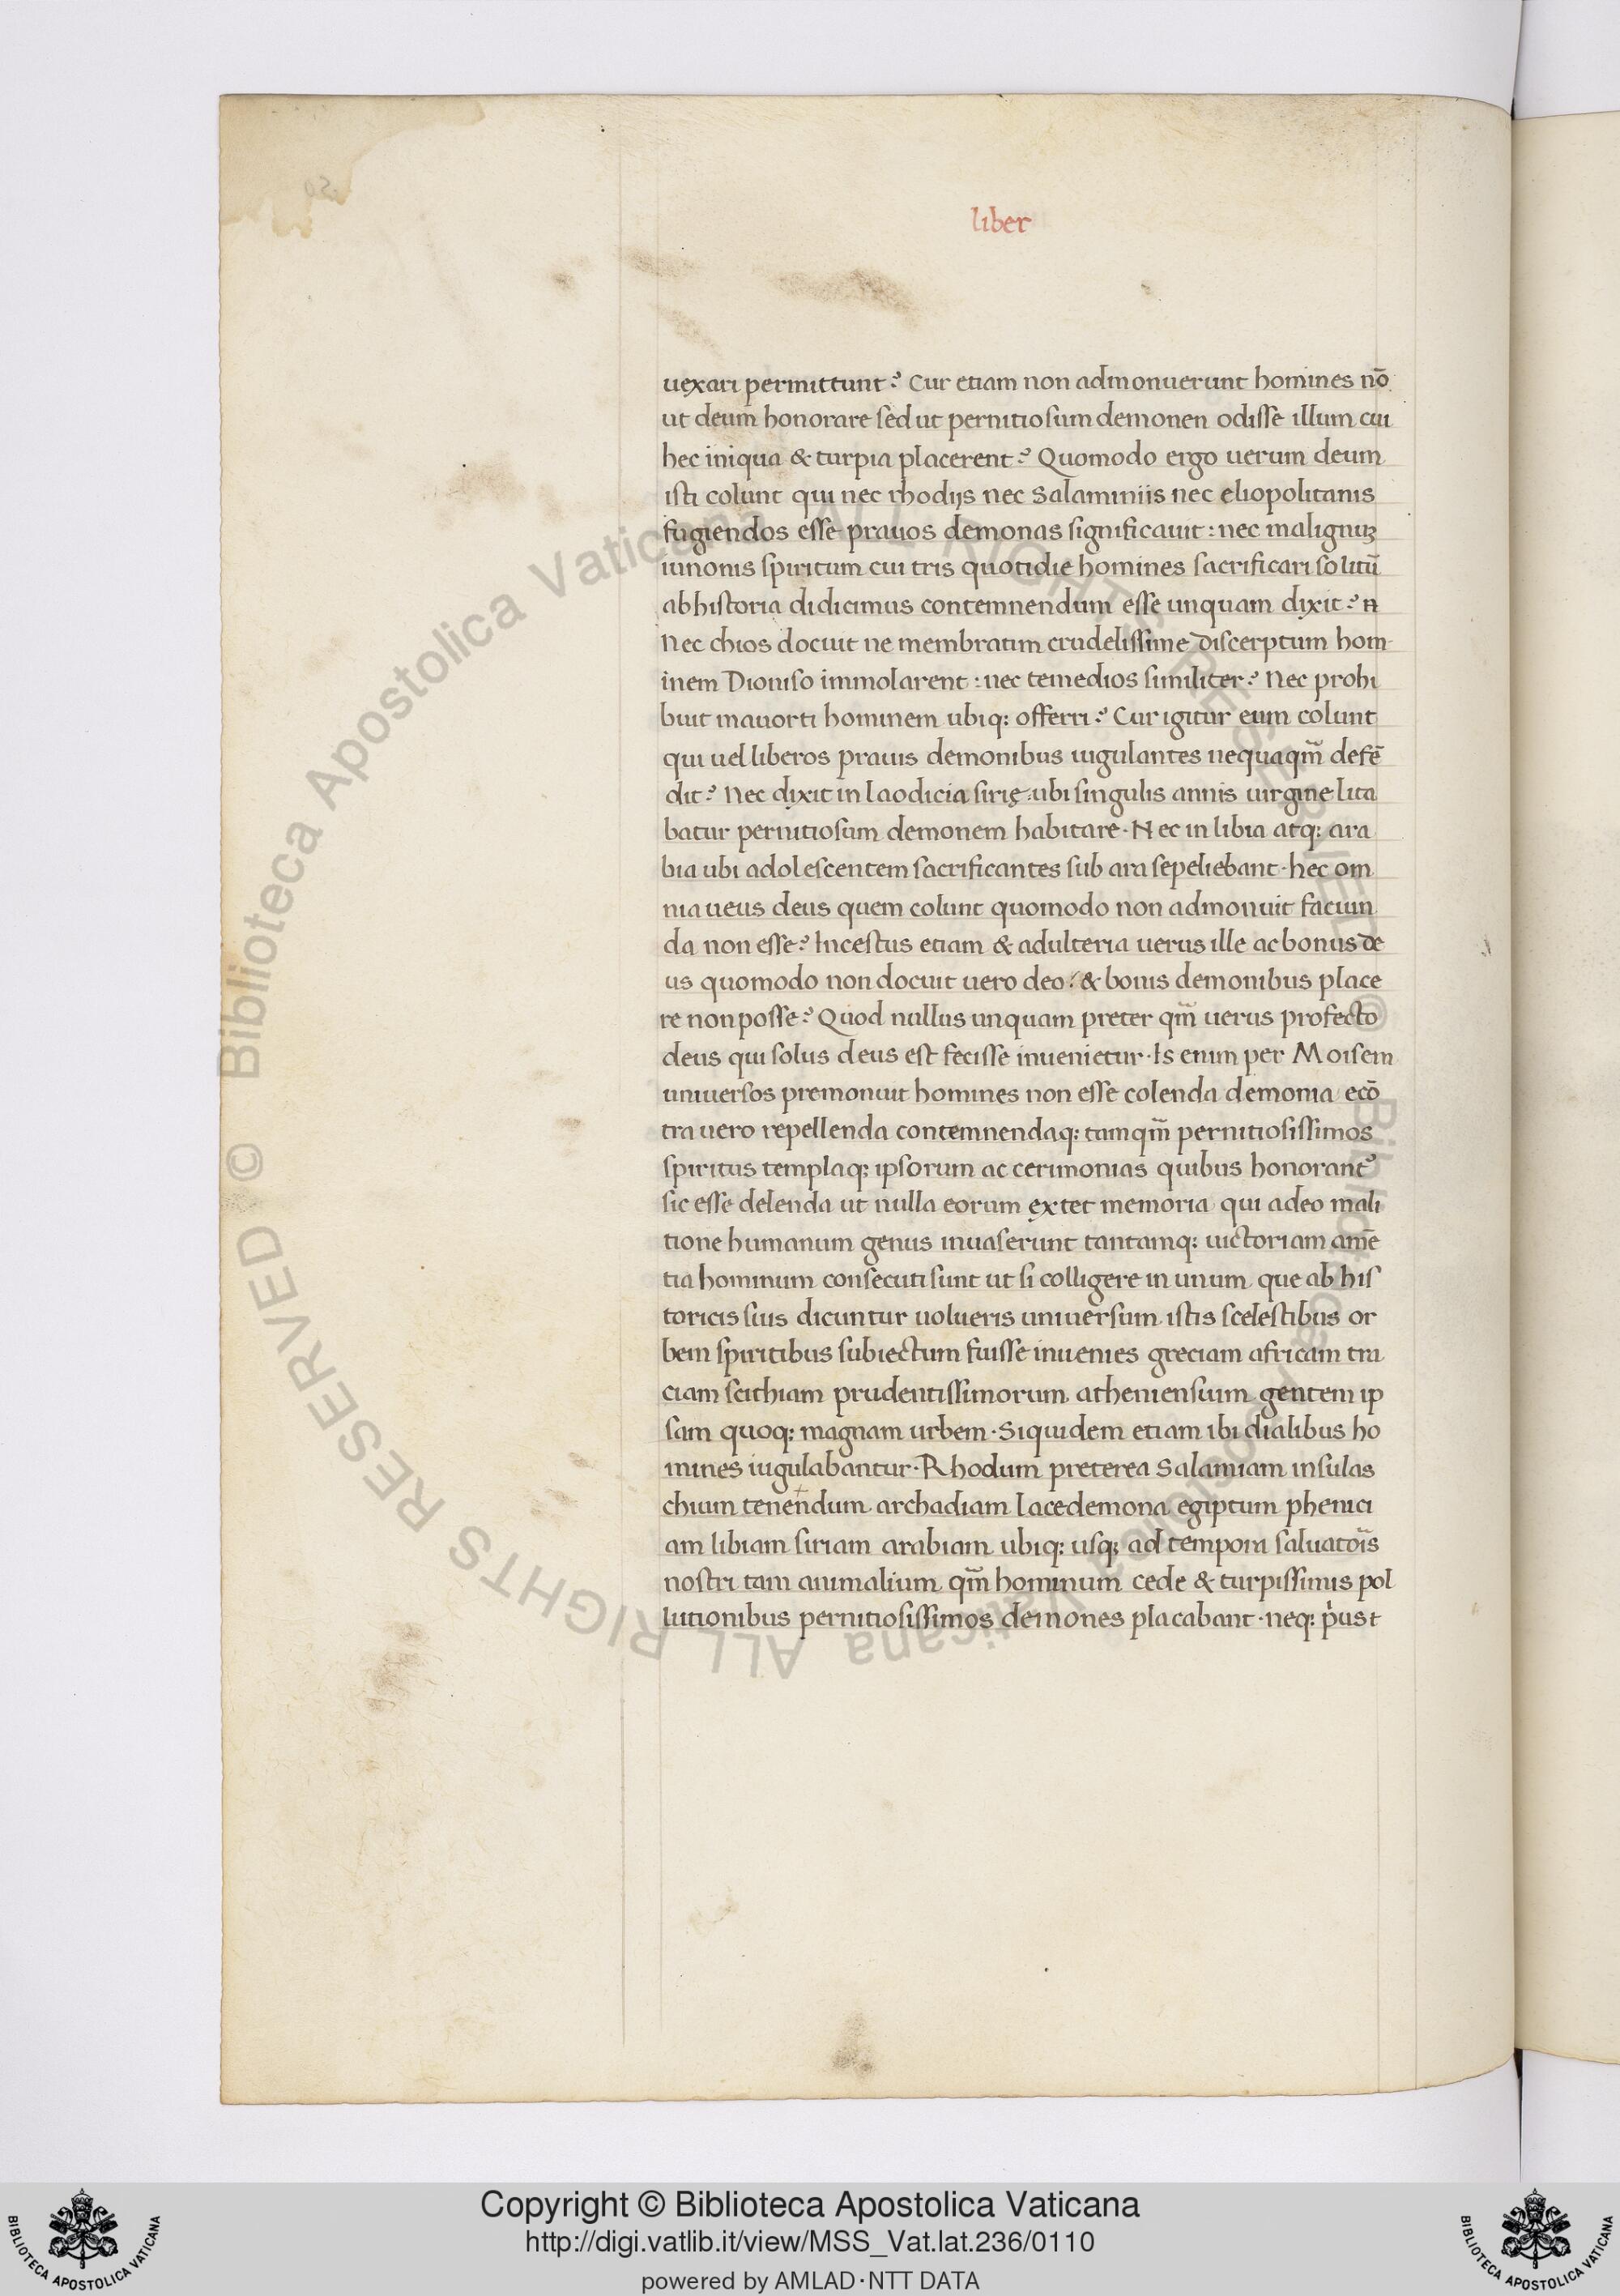 liber
uexari permittunt? Cur etiam non admonuerunt homines nō
ut deum honorare sed ut pernitiosum demonen odisse illum cui
hec iniqua & turpia placerent? Quomodo ergo uerum deum
isti colunt qui nec rhodijs nec Salaminiis nec eliopolitanis
fugiendos esse prauos demonas significauit: nec malignuꝫ
iunonis spiritum cui tris quotidie homines sacrificari solitū
ab historia didicimus contemnendum esse unquam dixit? n
Nec chios docuit ne membratim crudelissime discerptum hom
inem Dioniso immolarent: nec temedios similiter? Nec prohi
buit mauorti hominem ubiq; offerri? Cur igitur eum colunt
qui uel liberos prauis demonibus iugulantes nequaqm̄ defē
dit? Nec dixit in laodicia sirię: ubi singulis annis uirgine lita
batur pernitiosum demonem habitare· Nec in libia atq; ara
bia ubi adolescentem sacrificantes sub ara sepeliebant· hec om
nia ueus deus quem colunt quomodo non admonuit faciun
da non esse? Incestus etiam & adulteria uerus ille ac bonus de
us quomodo non docuit uero deo: & bonis demonibus place
re non posse? Quod nullus unquam preter qm̄ uerus profecto
deus qui solus deus est fecisse inuenietur· Is enim per Moisem
uniuersos premonuit homines non esse colenda demonia ecō
tra uero repellenda contemnendaq; tamqm̄ pernitiosissimos
spiritus templaq; ipsorum ac cerimonias quibus honorant᷒
sic esse delenda ut nulla eorum extet memoria qui adeo mali
tione humanum genus inuaserunt tantamq; uictoriam amē
tia hominum consecuti sunt ut si colligere in unum que ab his
toricis suis dicuntur uolueris uniuersum istis scelestibus or
bem spiritibus subiectum fuisse inuenies greciam africam tra
ciam scithiam prudentissimorum atheniensium gentem ip
sam quoq; magnam urbem· Siquidem etiam ibi dialibus ho
mines iugulabantur· Rhodum preterea Salamiam insulas
chium tenendum archadiam lacedemona egiptum phenici
am libiam siriam arabiam ubiq; usq; ad tempora saluatōis
nostri tam animalium qm̄ hominum cede & turpissimis pol
lutionibus pernitiosissimos demones placabant· neq; pͥus t
Copyright © Biblioteca Apostolica Vaticana
http://digi.vatlib.it/view/MSS_Vat.lat.236/0110
powered by AMLAD·NTT DATA
BIBLIOTECA APOSTOLICA VATICANA
BIBLIOTECA APOSTOLICA VATICANA
© Biblioteca Apostolica Vaticana ALL RIGHTS RESERVED
© Biblioteca Apostolica Vaticana ALL RIGHTS RESERVED